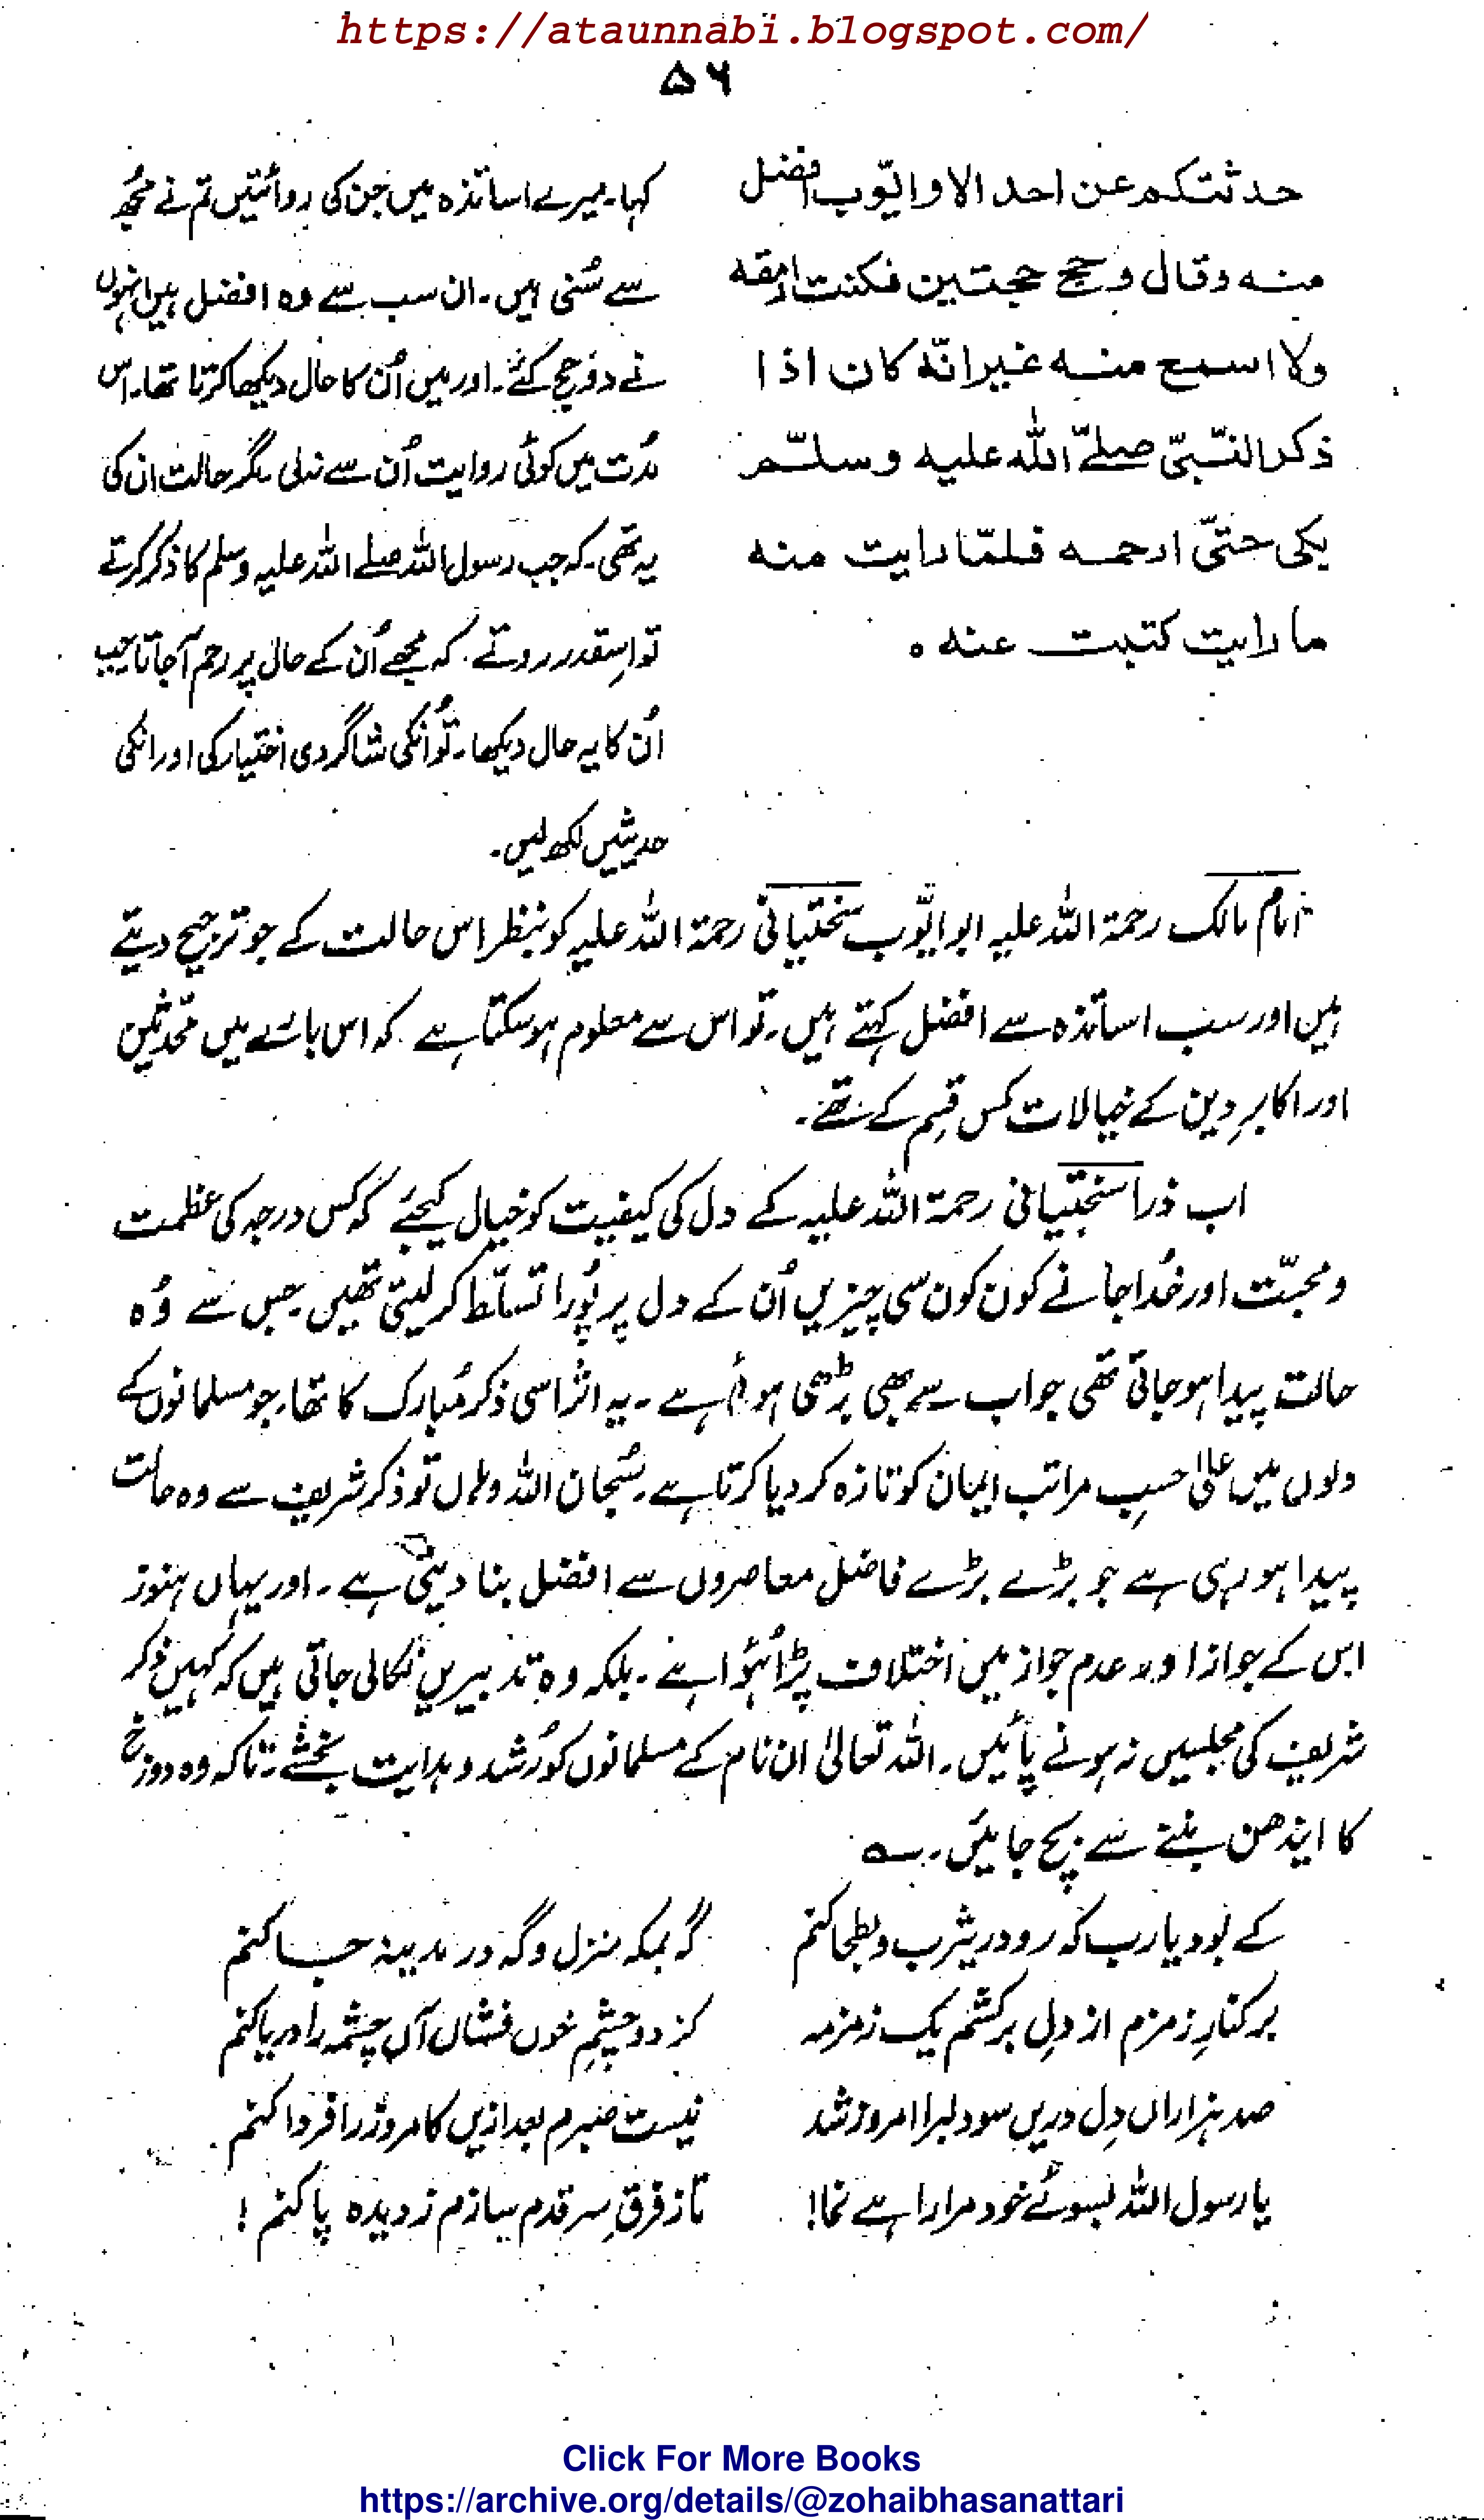 https://ataunnabi.blogspot.com/
۵۶
حدثتکم عن احد الا وایّوب افضل
منه وقال وحج حجتین فکنت ارمقه
ولا اسمع منه غیر انّه کان اذا
ذکر النّبیّ صلےّ اللّٰه علیه وسلّم
یکی حتّی ارحمه فلمّا رایت منه
ما رایت کتبت عنه ۰
کہا۔ میرے اساتذہ میں جن کی روائتیں تم نے مجُھ
سے سُنی ہیں۔ ان سب سے وہ افضل ہیں انہوں
نے دو حج کئے۔ اور میں اُن کا حال دیکھا کرتا تھا۔ اس
مدُت میں کوئی روایت اُن سے نہ لی مگر حالت ان کی
یہ تھی۔ کہ جب رسول اللہ صلے اللہ علیہ وسلم کا ذکر کرتے
تو اسقدر روتے۔ کہ مجھے اُن کے حال پر رحم آ جاتا جب
اُن کا یہ حال دیکھا۔ تو اُنکی شاگردی اختیار کی اور انکی
حدیثیں لکھ لیں۔
امام مالک رحمۃ اللہ علیہ ابو ایّوب سختیانی رحمۃ اللہ علیہ کو بنظر اس حالت کے جو ترجیح دیتے
ہیں اور سب اساتذہ سے افضل کہتے ہیں۔ تو اس سے معلوم ہو سکتا ہے۔ کہ اس بائے میں محّدثین
اور اکابرِ دین کے خیالات کس قِسم کے تھے۔
اب ذرا سختیانی رحمۃ اللہ علیہ کے دل کی کیفیت کو خیال کیجئے کہ کس درجہ کی عظمت
و محبّت اور خُدا جانے کون کون سی چیزیں اُن کے دل پر پُورا تسلّط کر لیتی تھیں۔ جس سے وُہ
حالت پیدا ہو جاتی تھی جو اب سے بھی بڑھی ہوئی ہے۔ یہ اثر اسی ذکر مُبارک کا تھا۔ جو مسلمانوں کے
دلوں میں علیٰ حسبِ مراتب ایمان کو تازہ کر دیا کرتا ہے۔ سُبحان اللہ وہاں تو ذکر شریف سے وہ حالت
پیدا ہو رہی ہے جو بڑے بڑے فاضل معاصروں سے افضل بنا دیتی ہے۔ اور یہاں ہنوز
اس کے جواز اور عدم جواز میں اختلاف پڑا ہُؤا ہے۔ بلکہ وہ تدبیریں نکالی جاتی ہیں کہ کہیں ذکر
شریف کی مجلسیں نہ ہونے پائیں۔ اللہ تعالیٰ ان نام کے مسلمانوں کو رُشد و ہدایت بخشے۔ تاکہ وہ دوزخ
کا ایندھن بننے سے بچ جائیں۔ ؎
کے بود یارب کہ رو در یثرب و بطحا کنم
گہ بمکہ منزل و گہ در مدینہ جا کنم
بر کنارِ زمزم از دِل بر کشم یک زمزمہ
کز دو چشمِ خوں فشاں آں چشمہ را دریا کنم
صد ہزاراں دِل دریں سودا مرا امروز شد
نیست صبرم بعد ازیں کامروز را فردا کنم
یا رسول اللہ بسوئے خود مرا راہے نما!
تا ز فرقِ سر قدم سازم ز دیدہ پا کنم!
Click For More Books
https://archive.org/details/@zohaibhasanattari